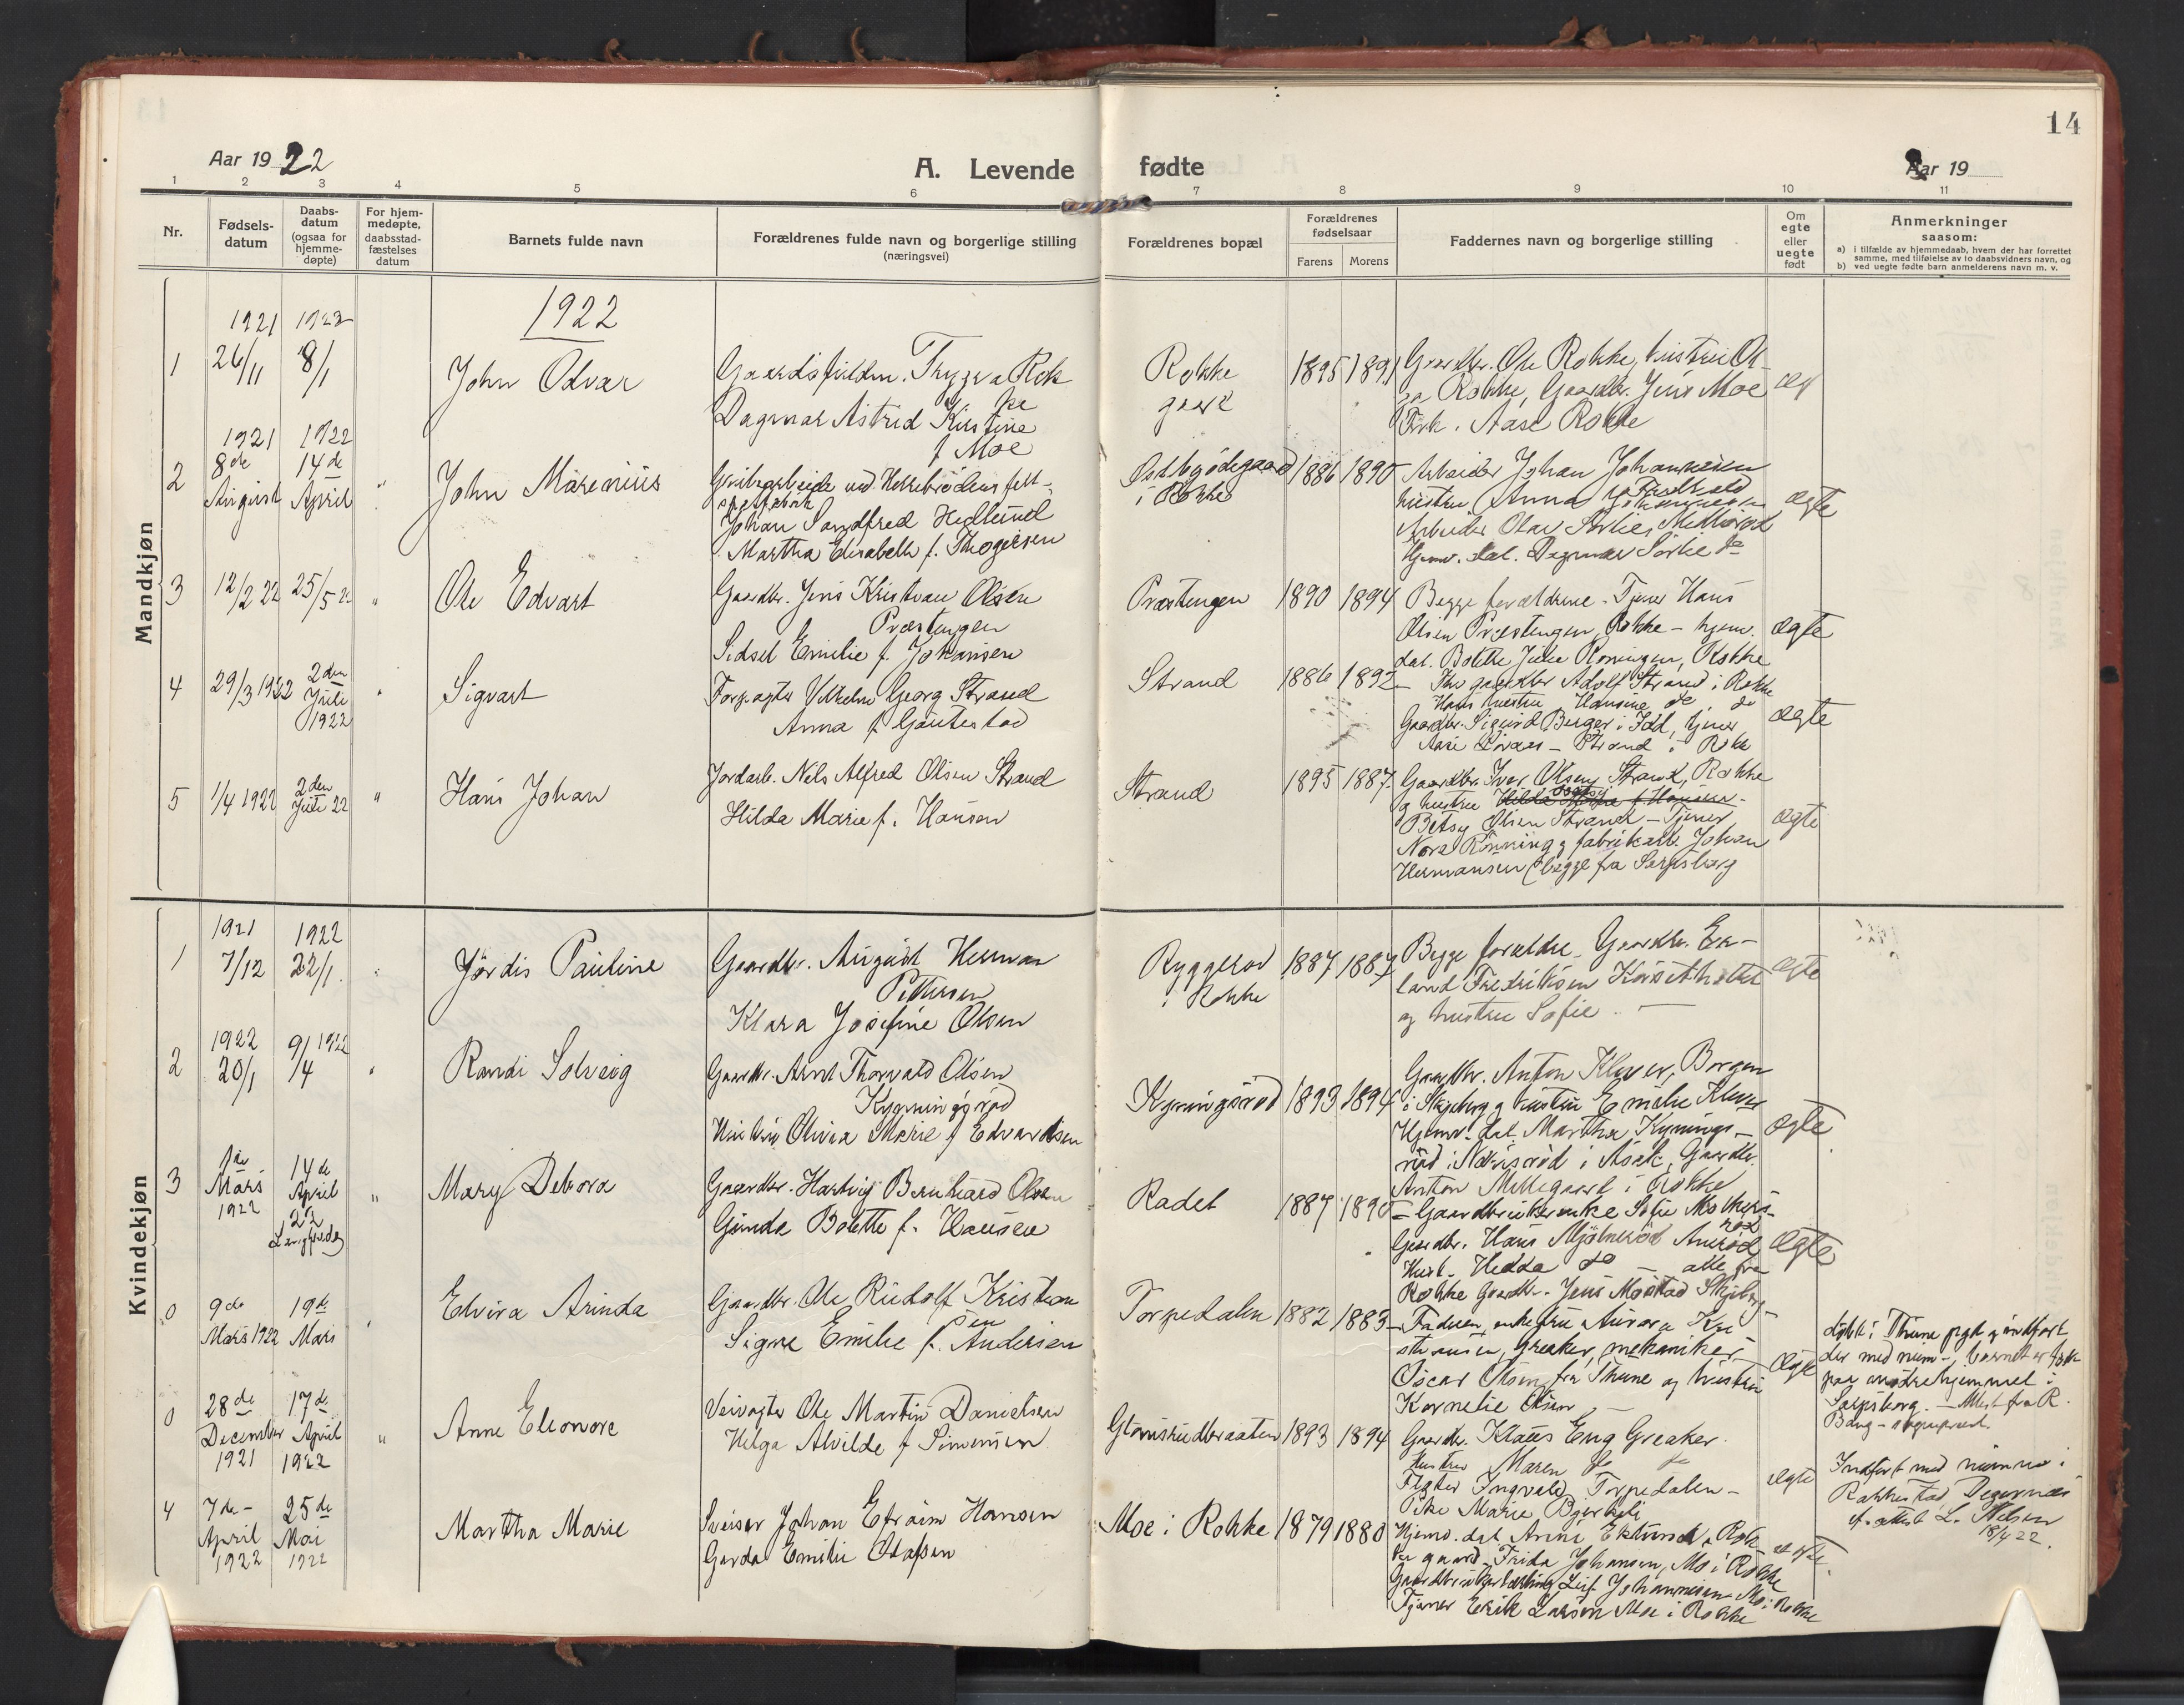 14
Aar 1922
A. Levende fødte
Aar 19
1 2 3 4 5 6 7 8 9 10 11
Nr.
Fødsels-
datum
Daabs-
datum
(ogsaa for
hjemme-
døpte)
For hjem-
medøpte,
daabsstad-
fæstelses
datum
Barnets fulde navn
Forældrenes fulde navn og borgerlige stilling
(næringsvei)
Forældrenes bopæl
Forældrenes
fødselsaar
Farens Morens
Faddernes navn og borgerlige stilling
Om
egte
eller
uegte
født
Anmerkninger
saasom:
a) i tilfælde av hjemmedaab, hvem der har forrettet
samme, med tilføielse av to daabsvidners navn, og
b) ved uegte fødte barn anmelderens navn m. v.
Mandkjøn
1922
1921 1922
1 26/11 8/1
John Odvar
Trygve Rok
ke
Dagmar Astrid Kirstine
f Moe
Rokke
gaard
1895 1891
Gaardbr. Ole Rokke, hustru Ol-
ga Rokke, Gaardbr. Jens Moe
Frk. Aase Rokke
1921 1922
2 8de 14de
August April
John Marenius
Johan Sandfred Hedlund
Martha Elisabeth f. Thogersen
i Rokke
1886 1890
Arbeider Johan Johannesen
hustru Anna
Arbeider Olav Sørlie,
Hjemv. dat. Dagmar Sørlie do
ægte
3 12/2 22 25/5 22 "
Ole Edvart
Gaardbr. Jens Kristian Olsen
Præstengen
Sidsel Emilie f. Johansen
Præstengen
1890 1894
Begge forældrene - Tjener Hans
Olsen Præstengen, Rokke - hjem.
dat. Bolette Julie Roningen, Rokke
ægte
4 29/3 1922 2den
Juli
1922
Sigvart
Forpagter Vilhelm Georg Strand
Anna f Gautestad
Strand
1886 1892
gaardbr Adolf Strand i Rokke
Hans hustru Hansine do do
Gaardbr. Sigurd Berger i Idd, tjener
Strand i Rokke
ægte
5 1/4 1922 2den
Juli 22 "
Hans Johan
Jordarb. Nels Alfred Olsen Strand
Hilda Marie f. Hansen
Strand
1895 1887
Gaardbr. Iver Olsen Strand, Rokke
og hustru Hilda Marie f Hansen -
Betsy Olsen Strand - Tjener
Nora Rønning og fabrikarb. Johan
Hermansen (begge fra Sarpsborg
ægte
Kvindekjøn
1921 1922
1 7/12 22/1
Jørdis Pauline
Gaardbr. August Herman
Pettersen
Klara Josefine Olsen
Ryggerød
i Rokke
1887 1887
Begge forældre - Gaardbr. Er-
land Fredriksen
og hustru Sofie -
ægte
1922 9/ 1922
2 20/1 /4
Randi Solveig
Gaardbr. Arnt Thorvald Olsen
Kynningsrød
Hustru Olivia Marie f Edvardsen
Kyningsrød
1893 1894
Gaardbr. Anton Klever, Borgen
i Skjeberg og hustru Emelie Klever
Hjemv. dat. Martha Kynings-
rød i Asak, Gaardbr.
Anton Mellegaard i Rokke
ægte
3 1de
Mars
1922
14de
April
22
Langfredag "
Mary Debora
Gaardbr. Hartvig Bernhard Olsen
Gunda Bolette f. Hansen
Radet
1887 1890
Gaardbrukerenke Sofie
Gaardbr. Hans
Husb. Hedda do - alle fra
Rokke Gaardbr. Jens Skjeberg
ægte
0 9de 19de
Mars 1922 Mars
Elvira Arinda
Gaardbr. Ole Rudolf Kristian
sen
Signe Emilie f. Andersen
Torpedalen
1882 1883
Faderen, enkefru Aurora Kri
stiansen, Greaker, mekaniker
Oscar Olsen fra Thune og hustru
Kornelie Olsen -
ægte
døbt i Thune prgd og indført
der med num-, barnet er født
paa mødrehjemmet i
Sarpsborg. - Attest fra R.
Bang - sogneprest.
0 28de 17de
December April
1921 1922 "
Anne Eleonore
Veivogter Ole Martin Danielsen
Helga Alvilde f Simensen
Glomsrudbraaten
1893 1894
Gaardbr. Klaus Eng Greaker.
Hustru Maren do do
Ingvald Torpedalen -
Pike Marie Bjerkeli
ægte
Indført med numer i
Rakkestad, Degernæs
f. attest L. Nilsen
18/4 22.
4 7de - 25de
April Mai
1922 1922
Martha Marie
Sveiser Johan Efraim Hansen
Gerda Emilie Olafsen
Moe i Rokke
1879 1880
Hjemv. dat Anna Eklund, Rok-
ke gaard - Frida Johansen, Mo i Rokke
Leif Johannesen Mo i Rokke
Tjener Erik Larsen Moe i Rokke
ægte.